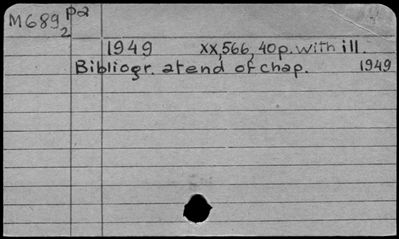 M689 pa
2
1949 xx,566,40p. with ill.
Bibliogr. at end of chap. 1949